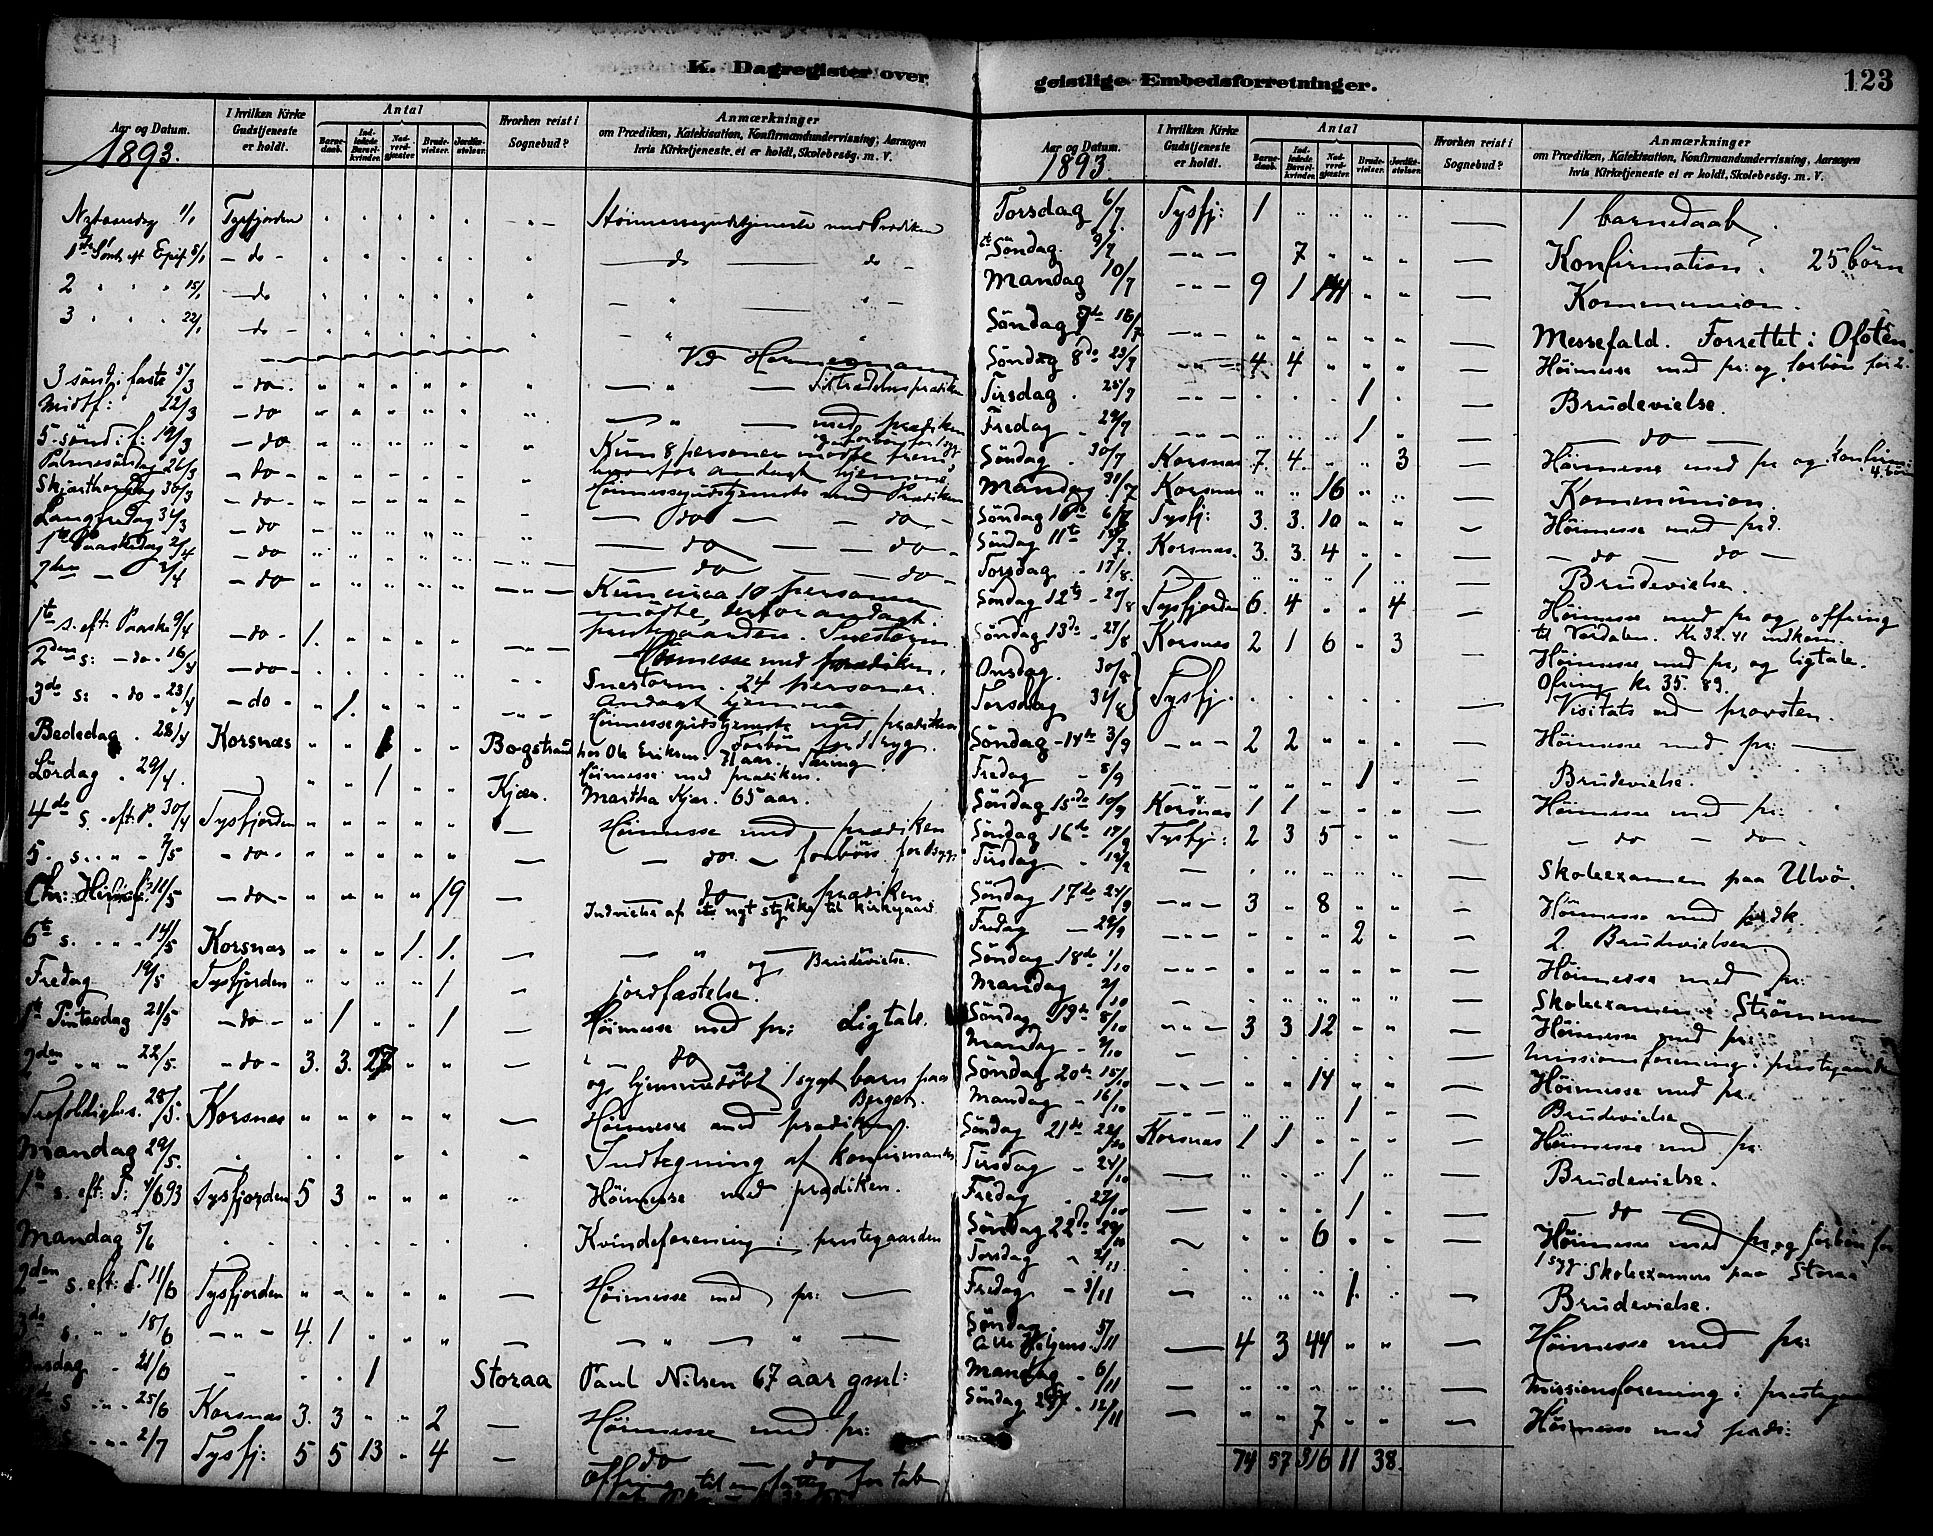 K. Dagregister over geistlige Embedsforretninger. 123
Aar og Datum. 1893.
I hvilken Kirke Gudstjeneste er holdt.
Antal
Barne-daab. Ind-ledede Barsel-kvinder. Nad-verd-gjæster. Brude-vielser. Jordfæ-stelser.
Hvorhen reist i Sognebud?
Anmærkninger
om Prædiken, Katekisation, Konfirmandundervisning, Aarsagen
hvis Kirketjeneste ei er holdt, Skolebesøg. m. V.
Nytaarsdag 1/1 Tysfjorden Høimessegudstjeneste med Prædiken
1ste Sønd. eft Epif 8/1 - do - - do - do -
2 " " " 15/1 - do
3 " " " 22/1 - do -
Ved
3 sönd i faste 5/3 - do - Tiltrædelsesprædiken
Midtf: 12/3 - do - " - med prædiken
5. sönd i f: 19/3 - do og forbön for 1 syg
Palmesöndag 26/3 - do - Kun 8 personer mödte frem,
hvorfor andagt hjemme.
Skjærthorsdag 30/3 - do - Höimessegudstjeneste med Prædiken
Langfredag 31/3 - do - do - - do -
1ste Paaskedag 2/4 - do - do - - do -
2den - 3/4 - do - do - - do -
1te s. eft: Paaske 9/4 - do - 1. Kun circa 10 personer
mödte, derfor andagt i
prestegaarden. Snestorm.
2den s: - do - 16/4 - do - Höimesse med prædiken.
3de s: - do - 23/4 - do - 1. Snestorm. 24 personer.
Andagt hjemme
Bededag. 28/4 Korsnæs 1 Bogstrand Höimessegudstjeneste med prædiken
hos Ole Eriksen. 71 aar. Forbön for 1 syg.
Lördag. 29/4. 1 Kjær. Höimesse med prædiken.
Martha Kjær. 65 aar.
4de s. eft: P. 30/4 Tysfjorden - Höimesse med prædiken
5. s. " " 7/5 - do - - - do. - forbön for 1 syg
Chr: Himmelf: 11/5 - do - 19 - do - prædiken
Indvielse af et nyt stykke til kirkegaard.
6te s. " " 14/5 Korsnæs 1. 1. - - " - og Brudevielse.
Fredag 19/5 Tysfjorden 1 - jordfæstelse.
1ste Pintsedag 21/5 - do - 1 1 - Höimesse med pr: Ligtale.
2den " " 22/5. - do - 3. 3. 27 - do -
og hjemmedöbt 1 sygt barn paa
Berget.
Trefoldighs. 28/5. Korsnæs - Höimesse med prædiken.
Mandag 29/5. Indtegning af konfirmander
1ste s. eft: T: 4/6 93 Tysfjorden 5 3 Höimesse med prædiken.
Mandag 5/6 Kvindeforening i prestegaarden
2den s. eft: T. 11/6 Tysfjorden - Höimesse med pr: -
3de s. " " 18/6 - " - 4. 1 - - " " -
21/6 1 Storaa Paul Nilsen 67 aar gml:
s " " 25/6 Korsnæs 3. 3 2 - Höimesse med pr:
" " 2/7 Tysfj: 5 5 13 4 - do - do
Offring til
Aar og Datum. 1893.
I hvilken Kirke Gudstjeneste er holdt.
Antal
Barne-daab. Ind-ledede Barsel-kvinder. Nad-verd-gjæster. Brude-vielser. Jordfæ-stelser.
Hvorhen reist i Sognebud?
Anmærkninger
om Prædiken, Katekisation, Konfirmandundervisning, Aarsagen
hvis Kirketjeneste ei er holdt, Skolebesøg. m. V.
Torsdag 6/7 Tysfj: 1 - 1 barnedaab.
Söndag 9/7 - " - 7 - Konfirmation. 25 börn
Mandag 10/7 - " - 9 1 - Kommunion.
Söndag 7de 16/7 - " - - Messefald. Forrettet i Ofoten.
Söndag 8de 23/7 - " - 4 4 - Höimesse med pr: og forbön for 2.
Tirsdag. 25/7 - " - 1 - Brudevielse.
Fredag. 29/7 - " - 1 - - do -
Söndag. 30/7 Korsnæs 7. 4. 3 - Höimesse med pr og konfirm: 4 börn
Mandag. 31/7 Korsnæs 16 - Kommunion.
Söndag 10de 6/8 Tysfj: 3. 3. 10 - Höimesse med præd.
Söndag 11te Korsnæs. 3. 3. 4 - - do - do -
Torsdag 17/8. - 1 - Brudevielse.
Söndag 12te - 20/8 Tysfjorden 6. 4 4 - Höimesse med pr og offring
til Værdalen. Kr 32.41 indkom.
Söndag 13de - 27/8 Korsnæs 2 1 6 3 - Höimesse med pr, og ligtale.
Ofring kr 35.89.
Onsdag. 30/8
Torsdag 31/8 Tysfj. - Visitats ved provsten.
Söndag - 14de 3/9 - " - 2 2 - Höimesse med pr: -
Fredag - 8/9 - " - 1 - Brudevielse.
Söndag 15de 10/9 Korsnæs 1 1 - Höimesse med pr:
Söndag 16de 17/9 Tysfj: 2 3 5 - - do - do -
Tirsdag - 19/9 - - Skoleexamen paa Ulvö.
Söndag 17de 24/9 - " - 3 8 - Höimesse med prædk.
Fredag - 29/9 - " - 2 - 2. Brudevielser
Söndag 18de 1/10 - " - - Höimesse med pr:
Mandag 2/10 - - Skoleexamen i Strömmen
Söndag 19de 8/10 - " - 3 3 12 - Höimesse med pr:
Mandag - 9/10 - - Missionsforening i prestegaarden
Söndag 20de 15/10 - " - 14 - Höimesse med pr:
Mandag - 16/10 - " - 1 - Brudevielse
Söndag 21de 22/10 Korsnæs 1 1 - Höimesse med pr:
Tirsdag - 24/10 - 1 - Brudevielse.
Fredag - 27/10 - 1 - - do -
Söndag 22de 29/10 - 6 - Höimesse med pr, og forbön for
1 syg.
Torsdag " 2/11 Skoleexamen paa Storaa
Fredag - 3/11 - 1. - Brudevielse.
Söndag.
Alle Helgens. 5/11 - 4 3 44 - Höimesse med pr:
Mandag - 6/11 - - Missionsforening i prestegaarden
Söndag - 12/11 - 7 - Höimesse med præd:
74 57 316 11 38.